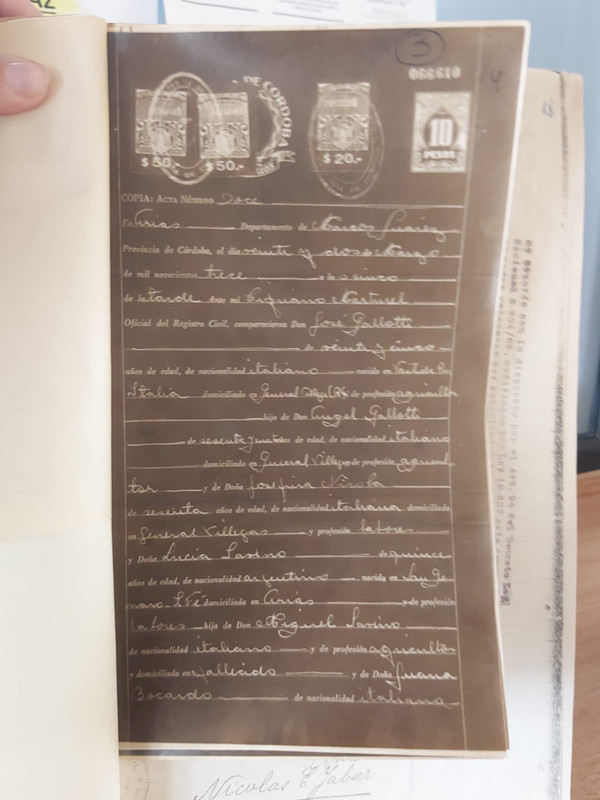 3
066610
4
DE CORDOBA
$ 50.- $ 50.- $ 20.- 10
PESOS
COPIA: ACTA NÚMERO Doce
En Arias Departamento de Marcos Juárez
Provincia de Córdoba, el día veinte y dos de Marzo
de mil novecientos trece a las cinco
de la tarde ante mí Cipriano Marturel
Oficial del Registro Civil, comparecieron Don José Gallotti
de veinte y cinco
años de edad, de nacionalidad italiano nacido en
Italia domiciliado en General Villegas de profesión agricultor
hijo de Don Angel Gallotti
de sesenta y años de edad, de nacionalidad italiano
domiciliado en General Villegas de profesión agricul-
tor y de Doña Josefina Nicola
de sesenta años de edad, de nacionalidad italiana domiciliada
en General Villegas y profesión labores
y Doña Lucia Savino de quince
años de edad, de nacionalidad argentina nacida en San Je-
naro S. Fé domiciliada en Arias y de profesión
labores hija de Don Miguel Savino
de nacionalidad italiano y de profesión agricultor
y domiciliado en fallecido y de Doña Juana
Bocardo de nacionalidad italiana
Nicolas E. Jabar